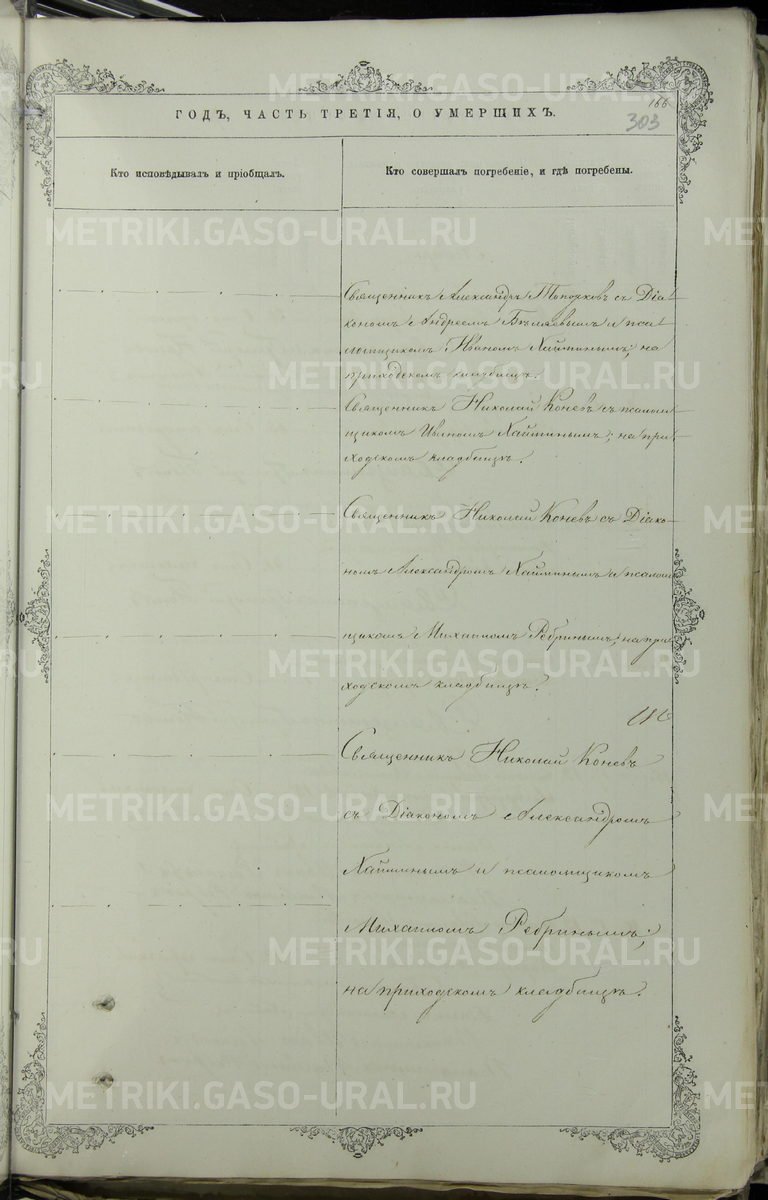 166
303
ГОДЪ, ЧАСТЬ ТРЕТІЯ, О УМЕРШИХЪ.
Кто исповѣдывалъ и пріобщалъ.
Кто совершалъ погребеніе, и гдѣ погребены.
Священникъ Александръ Топорковъ съ Діа-
кономъ Андреемъ Бѣляевымъ и пса-
ломщикомъ Иваномъ Хайминымъ; на
приходскомъ кладбищѣ.
Священникъ Николай Коневъ съ псалом-
щикомъ Иваномъ Хайминымъ; на при-
ходскомъ кладбищѣ.
Священникъ Николай Коневъ съ Діако-
номъ Александромъ Хайминымъ и псалом-
щикомъ Михаиломъ Ребринымъ; на при-
ходскомъ кладбищѣ.
Священникъ Николай Коневъ
съ Діакономъ Александромъ
Хайминымъ и псаломщикомъ
Михаиломъ Ребринымъ;
на приходскомъ кладбищѣ.
METRIKI.GASO-URAL.RU